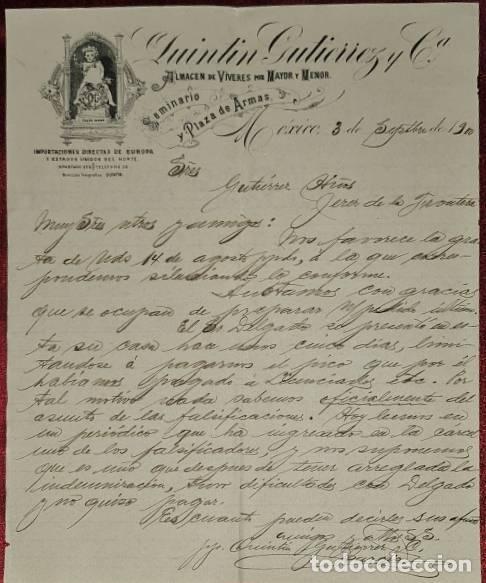 Quintin Gutierrez y Cª
ALMACEN DE VÍVERES POR MAYOR Y MENOR.
Seminario
y Plaza de Armas.
IMPORTACIONES DIRECTAS DE EUROPA
Y ESTADOS UNIDOS DEL NORTE.
México, 3 de Septbre de 19
Sres
Gutiérrez Hnos
Jerez de la Frontera
Muy Sres ntros y amigos:
Nos favorece la gra
ta de Uds 14 de agosto ppdo, a la que corres
pondemos siéndonos la conforme.
Anotamos con gracias
que se ocupan de preparar n/ pedido último.
El Sr Delgado se presentó en es
ta su casa hace unos cinco días, limi
tandose á pagarnos el pico que por él
habíamos pagado á Licenciados etc. Por
tal motivo nada sabemos oficialmente del
asunto de las falsificaciones. Hoy leemos en
un periódico que ha ingresado en la cárcel
uno de los falsificadores y nos suponemos
que es uno que despues de tener arreglada la
indemnización, tuvo dificultades con Delgado
y no quiso pagar.
Es cuanto pueden decirles sus afmos
amigos y
Quintin Gutierrez y C.
todocoleccion